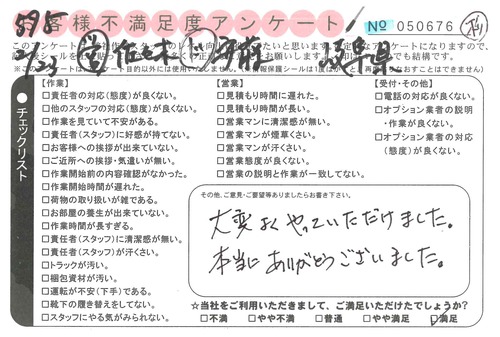 お客様不満足度アンケート
№ 050676
佐々木
午前
岐阜県
チェックリスト
【作業】
□責任者の対応(態度)が良くない。
□他のスタッフの対応(態度)が良くない。
□作業を見ていて不安がある。
□責任者(スタッフ)に好感が持てない。
□お客様への挨拶が出来ていない。
□ご近所への挨拶・気遣いが無い。
□作業開始前の内容確認がなかった。
□作業開始時間が遅れた。
□荷物の取り扱いが雑である。
□お部屋の養生が出来ていない。
□作業時間が長すぎる。
□責任者(スタッフ)に清潔感が無い。
□責任者(スタッフ)が汗くさい。
□トラックが汚い。
□梱包資材が汚い。
□運転が不安(下手)である。
□靴下の履き替えをしてない。
□スタッフにやる気がみられない。
【営業】
□見積もり時間に遅れた。
□見積もり時間が長い。
□営業マンに清潔感が無い。
□営業マンが煙草くさい。
□営業マンが汗くさい。
□営業態度が良くない。
□営業の説明と作業が一致してない。
【受付・その他】
□電話の対応が良くない。
□オプション業者の説明
・作業が良くない。
□オプション業者の対応
(態度)が良くない。
その他、ご意見・ご要望等ありましたらお書き下さい。
大変よくやっていただけました。
本当にありがとうございました。
☆当社をご利用いただきまして、ご満足いただけたでしょうか?
□不満 □やや不満 □普通 □やや満足 ☑満足